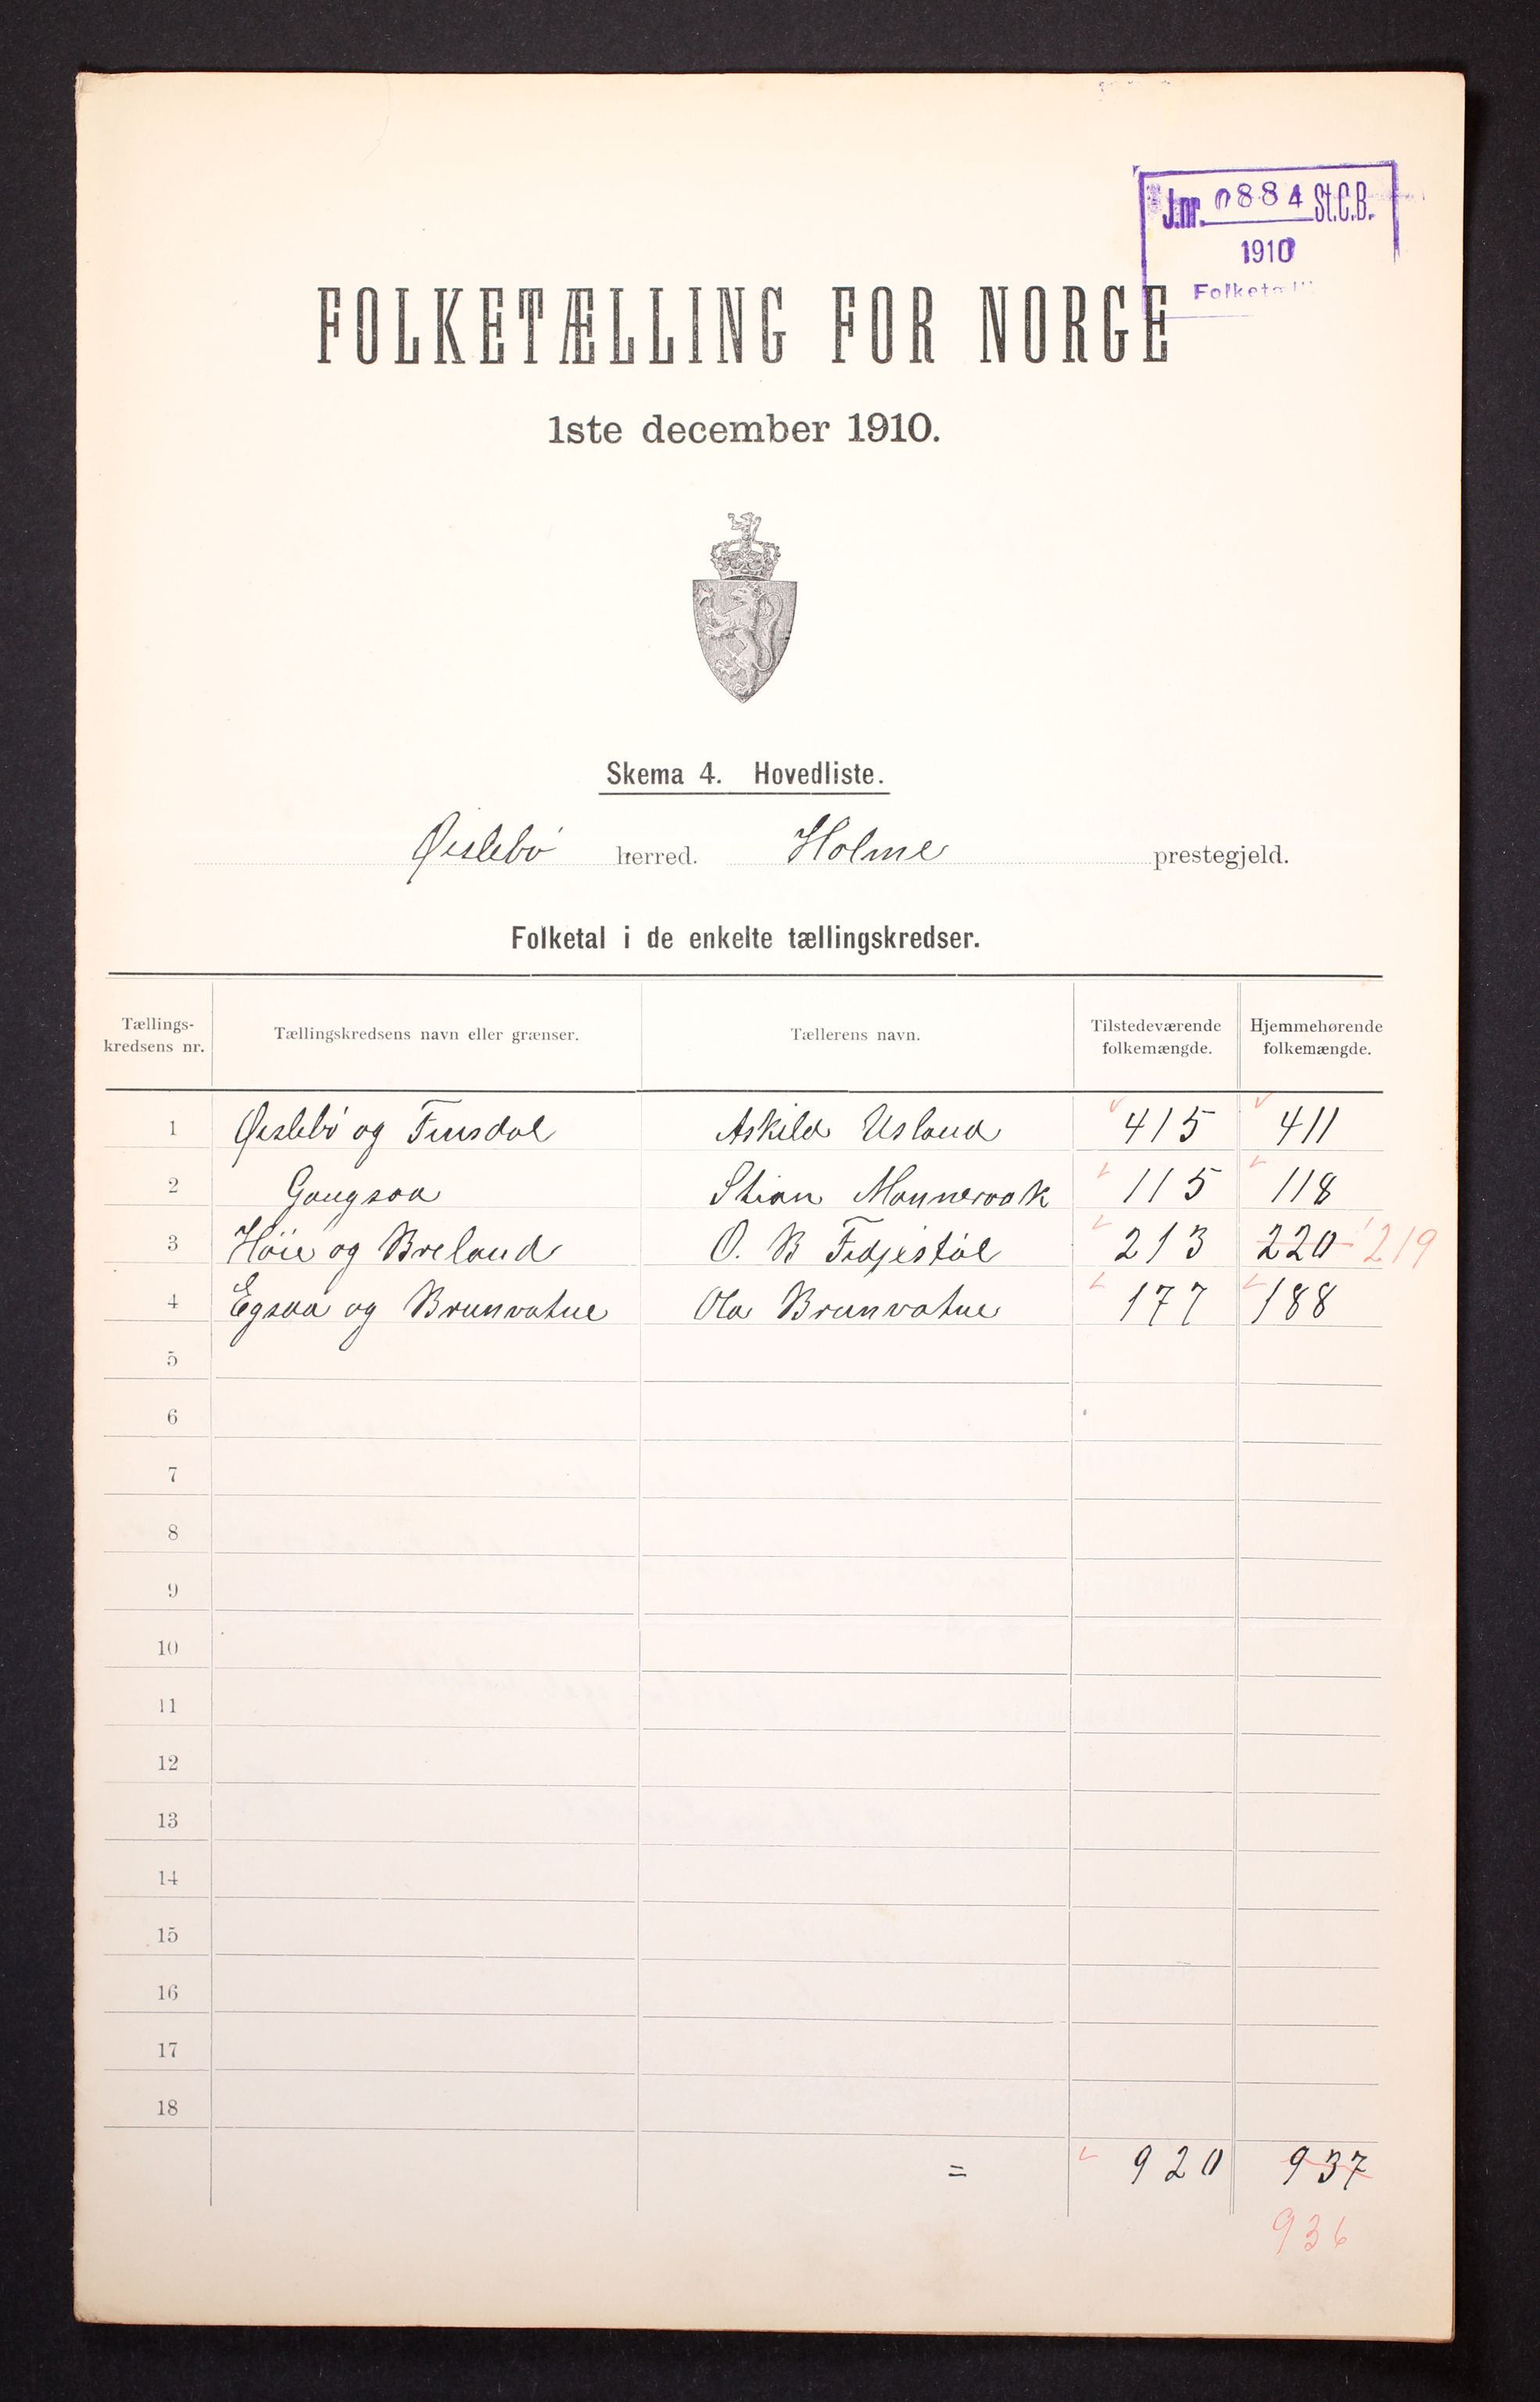 J.nr. 0884 St.C.B.
1910
FOLKETÆLLING FOR NORGE
1ste december 1910.
Skema 4. Hovedliste.
Øislebø herred. Holme prestegjeld.
Folketal i de enkelte tællingskredser.
Tællings-kredsens nr. Tællingskredsens navn eller grænser. Tællerens navn. Tilstedeværende folkemængde. Hjemmehørende folkemængde.
1 Øislebø og Finsdal Askild Usland 415 411
2 Gangsaa Stian Mannevaak 115 118
3 Høie og Breland O. B Fidjestøl 213 220 219
4 Egsaa og Brunvatne Ola Brunvatne 177 188
5
6
7
8
9
10
11
12
13
14
15
16
17
18
= 920 937
936